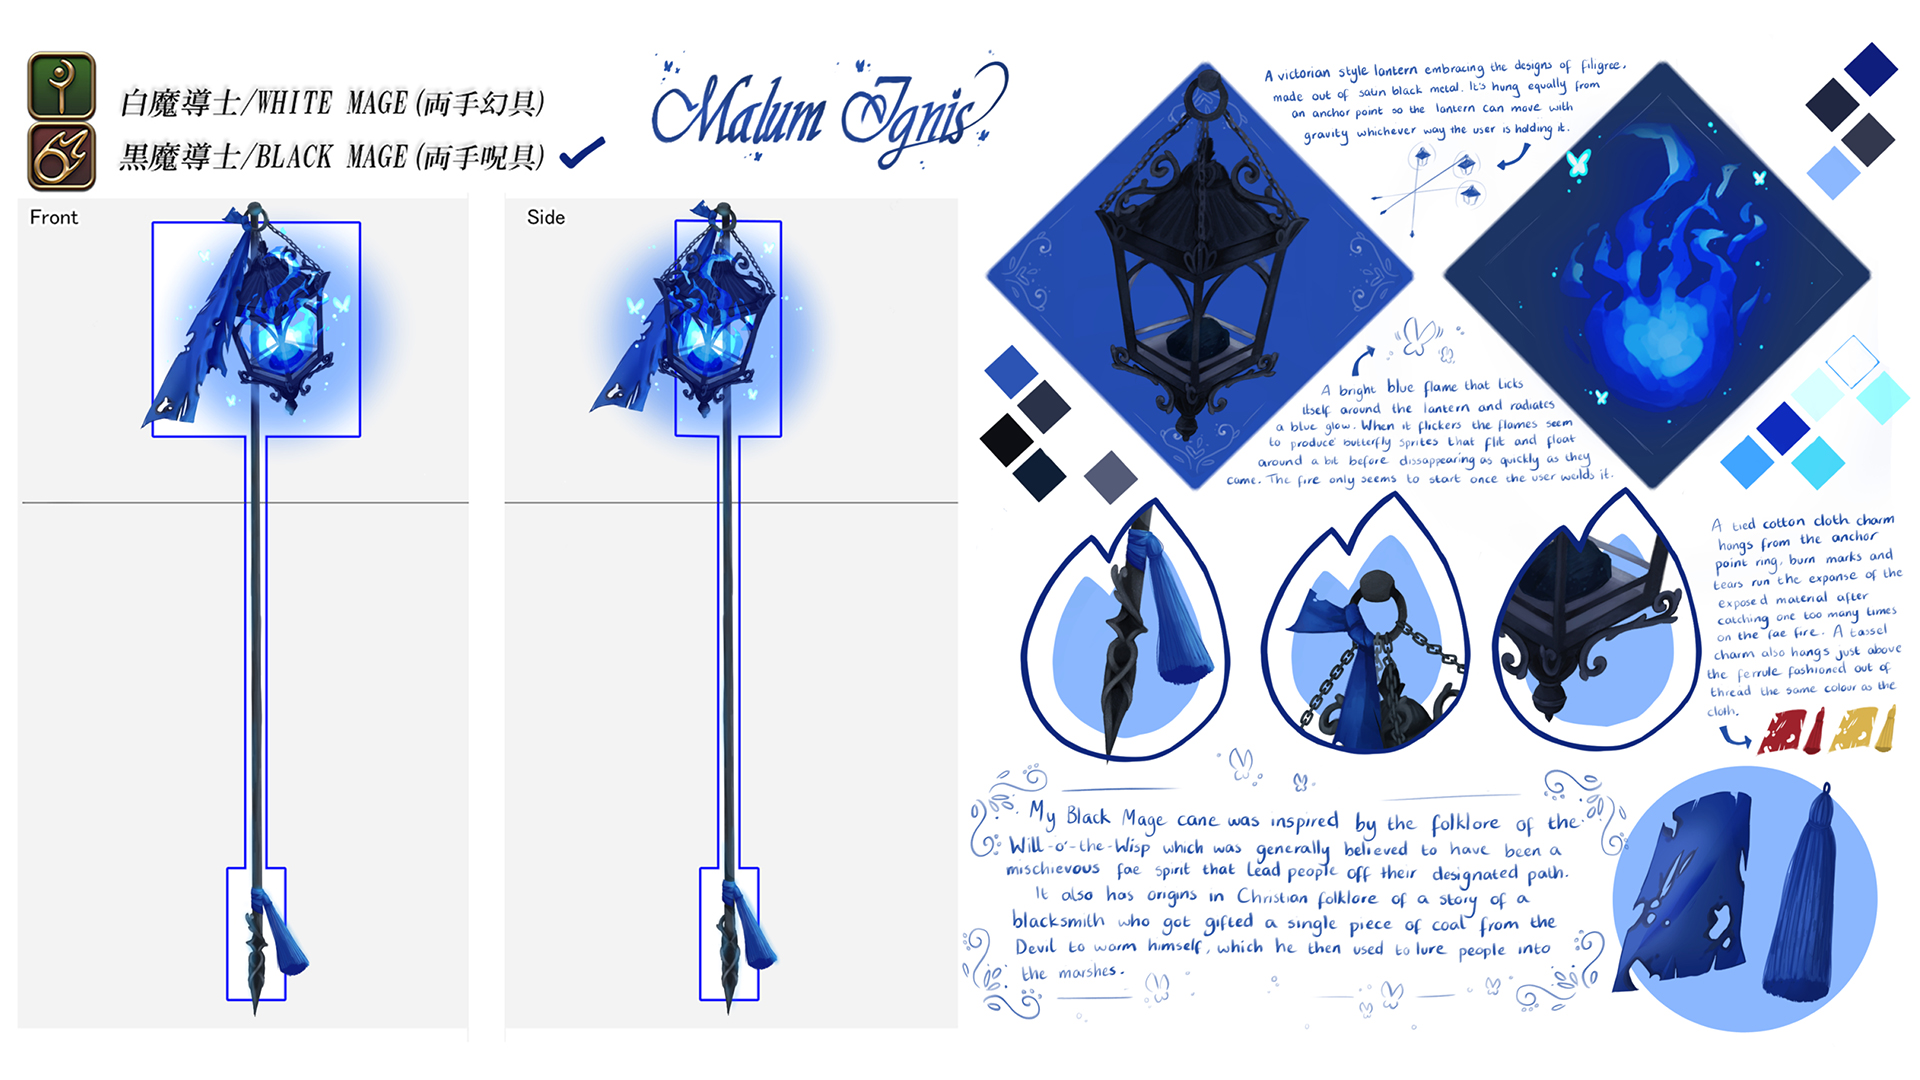 白魔導士/WHITE MAGE(両手幻具)
黒魔導士/BLACK MAGE(両手呪具)
Malum Ignis
Front
Side
A victorian style lantern embracing the designs of filigree,
made out of satin black metal. It's hung equally from
an anchor point so the lantern can move with
gravity whichever way the user is holding it.
A bright blue flame that licks
itself around the lantern and radiates
a blue glow. When it flickers the flames seem
to produce butterfly sprites that flit and float
around a bit before dissappearing as quickly as they
came. The fire only seems to start once the user weilds it.
A tied cotton cloth charm
hangs from the anchor
point ring, burn marks and
tears run the expanse of the
exposed material after
catching one too many times
on the fae fire. A tassel
charm also hangs just above
the ferrule fashioned out of
thread the same colour as the
cloth.
My Black Mage cane was inspired by the folklore of the
Will-o'-the-Wisp which was generally believed to have been a
mischievous fae spirit that lead people off their designated path.
It also has origins in Christian folklore of a story of a
blacksmith who got gifted a single piece of coal from the
Devil to warm himself, which he then used to lure people into
the marshes.